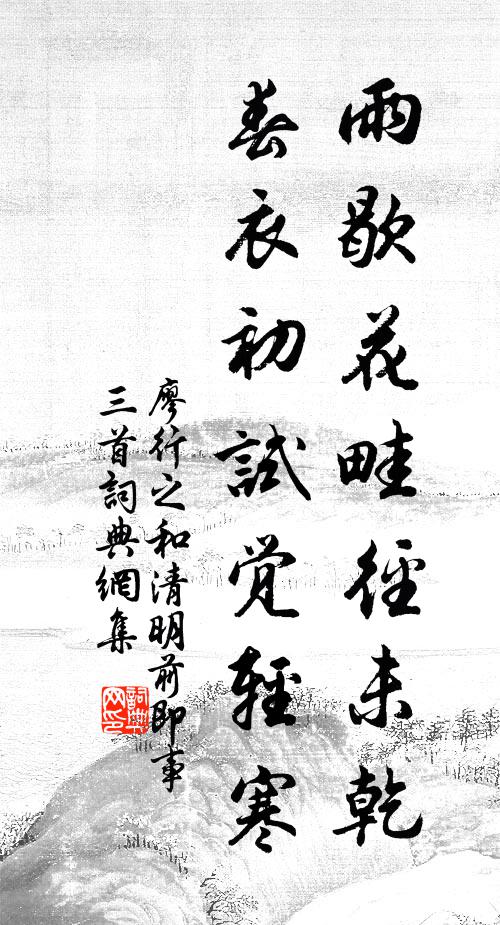 雨歇花畦徑未乾
春衣初試覺輕寒
廖行之和清明前即事
三首詞典網集
詞典
网印